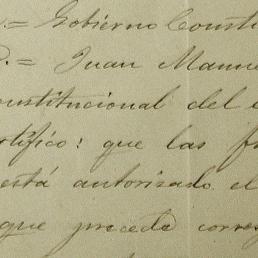 .= Gobierno Consti
D.= Juan Manue
onstitucional del e
rtifico: que las fi
está autorizado el
que precede corres